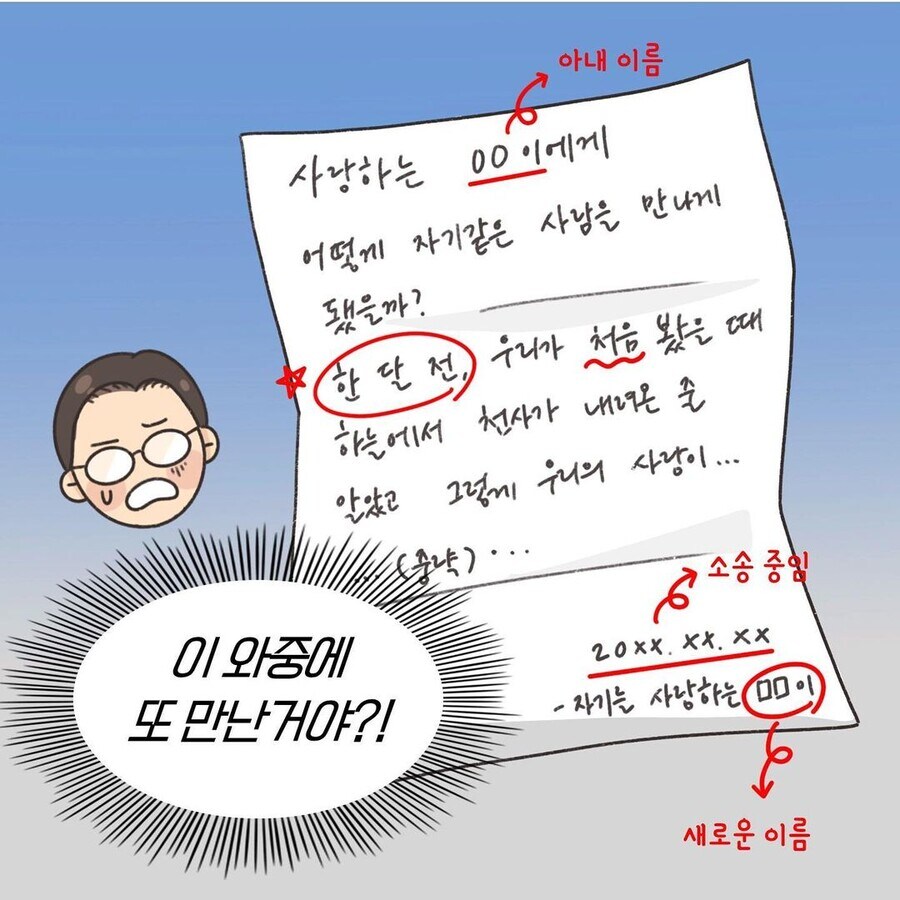 아내 이름
사랑하는 OO이에게
어떻게 자기같은 사람을 만나게
됐을까?
한 달 전, 우리가 처음 봤을 때
하늘에서 천사가 내려온 줄
알았고 그렇게 우리의 사랑이...
...(중략)...
소송 중임
20XX. XX. XX
- 자기를 사랑하는 □□이
새로운 이름
이 와중에
또 만난거야?!